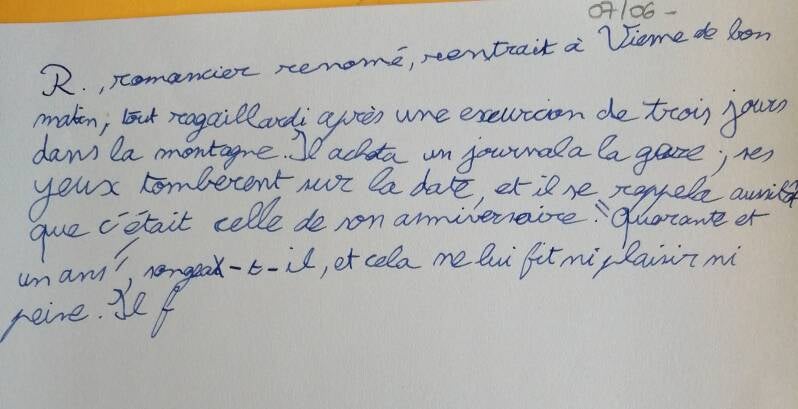 07/06-
R., romancier renomé, rentrait à Vienne de bon
matin, tout ragaillardi après une excurcion de trois jours
dans la montagne. Il acheta un journal a la gare; ses
yeux tombèrent sur la date, et il se rappela aussitôt
que c'était celle de son anniversaire. "Quarante et
un ans", songea-t-il, et cela ne lui fit ni plaisir ni
peine. Il f